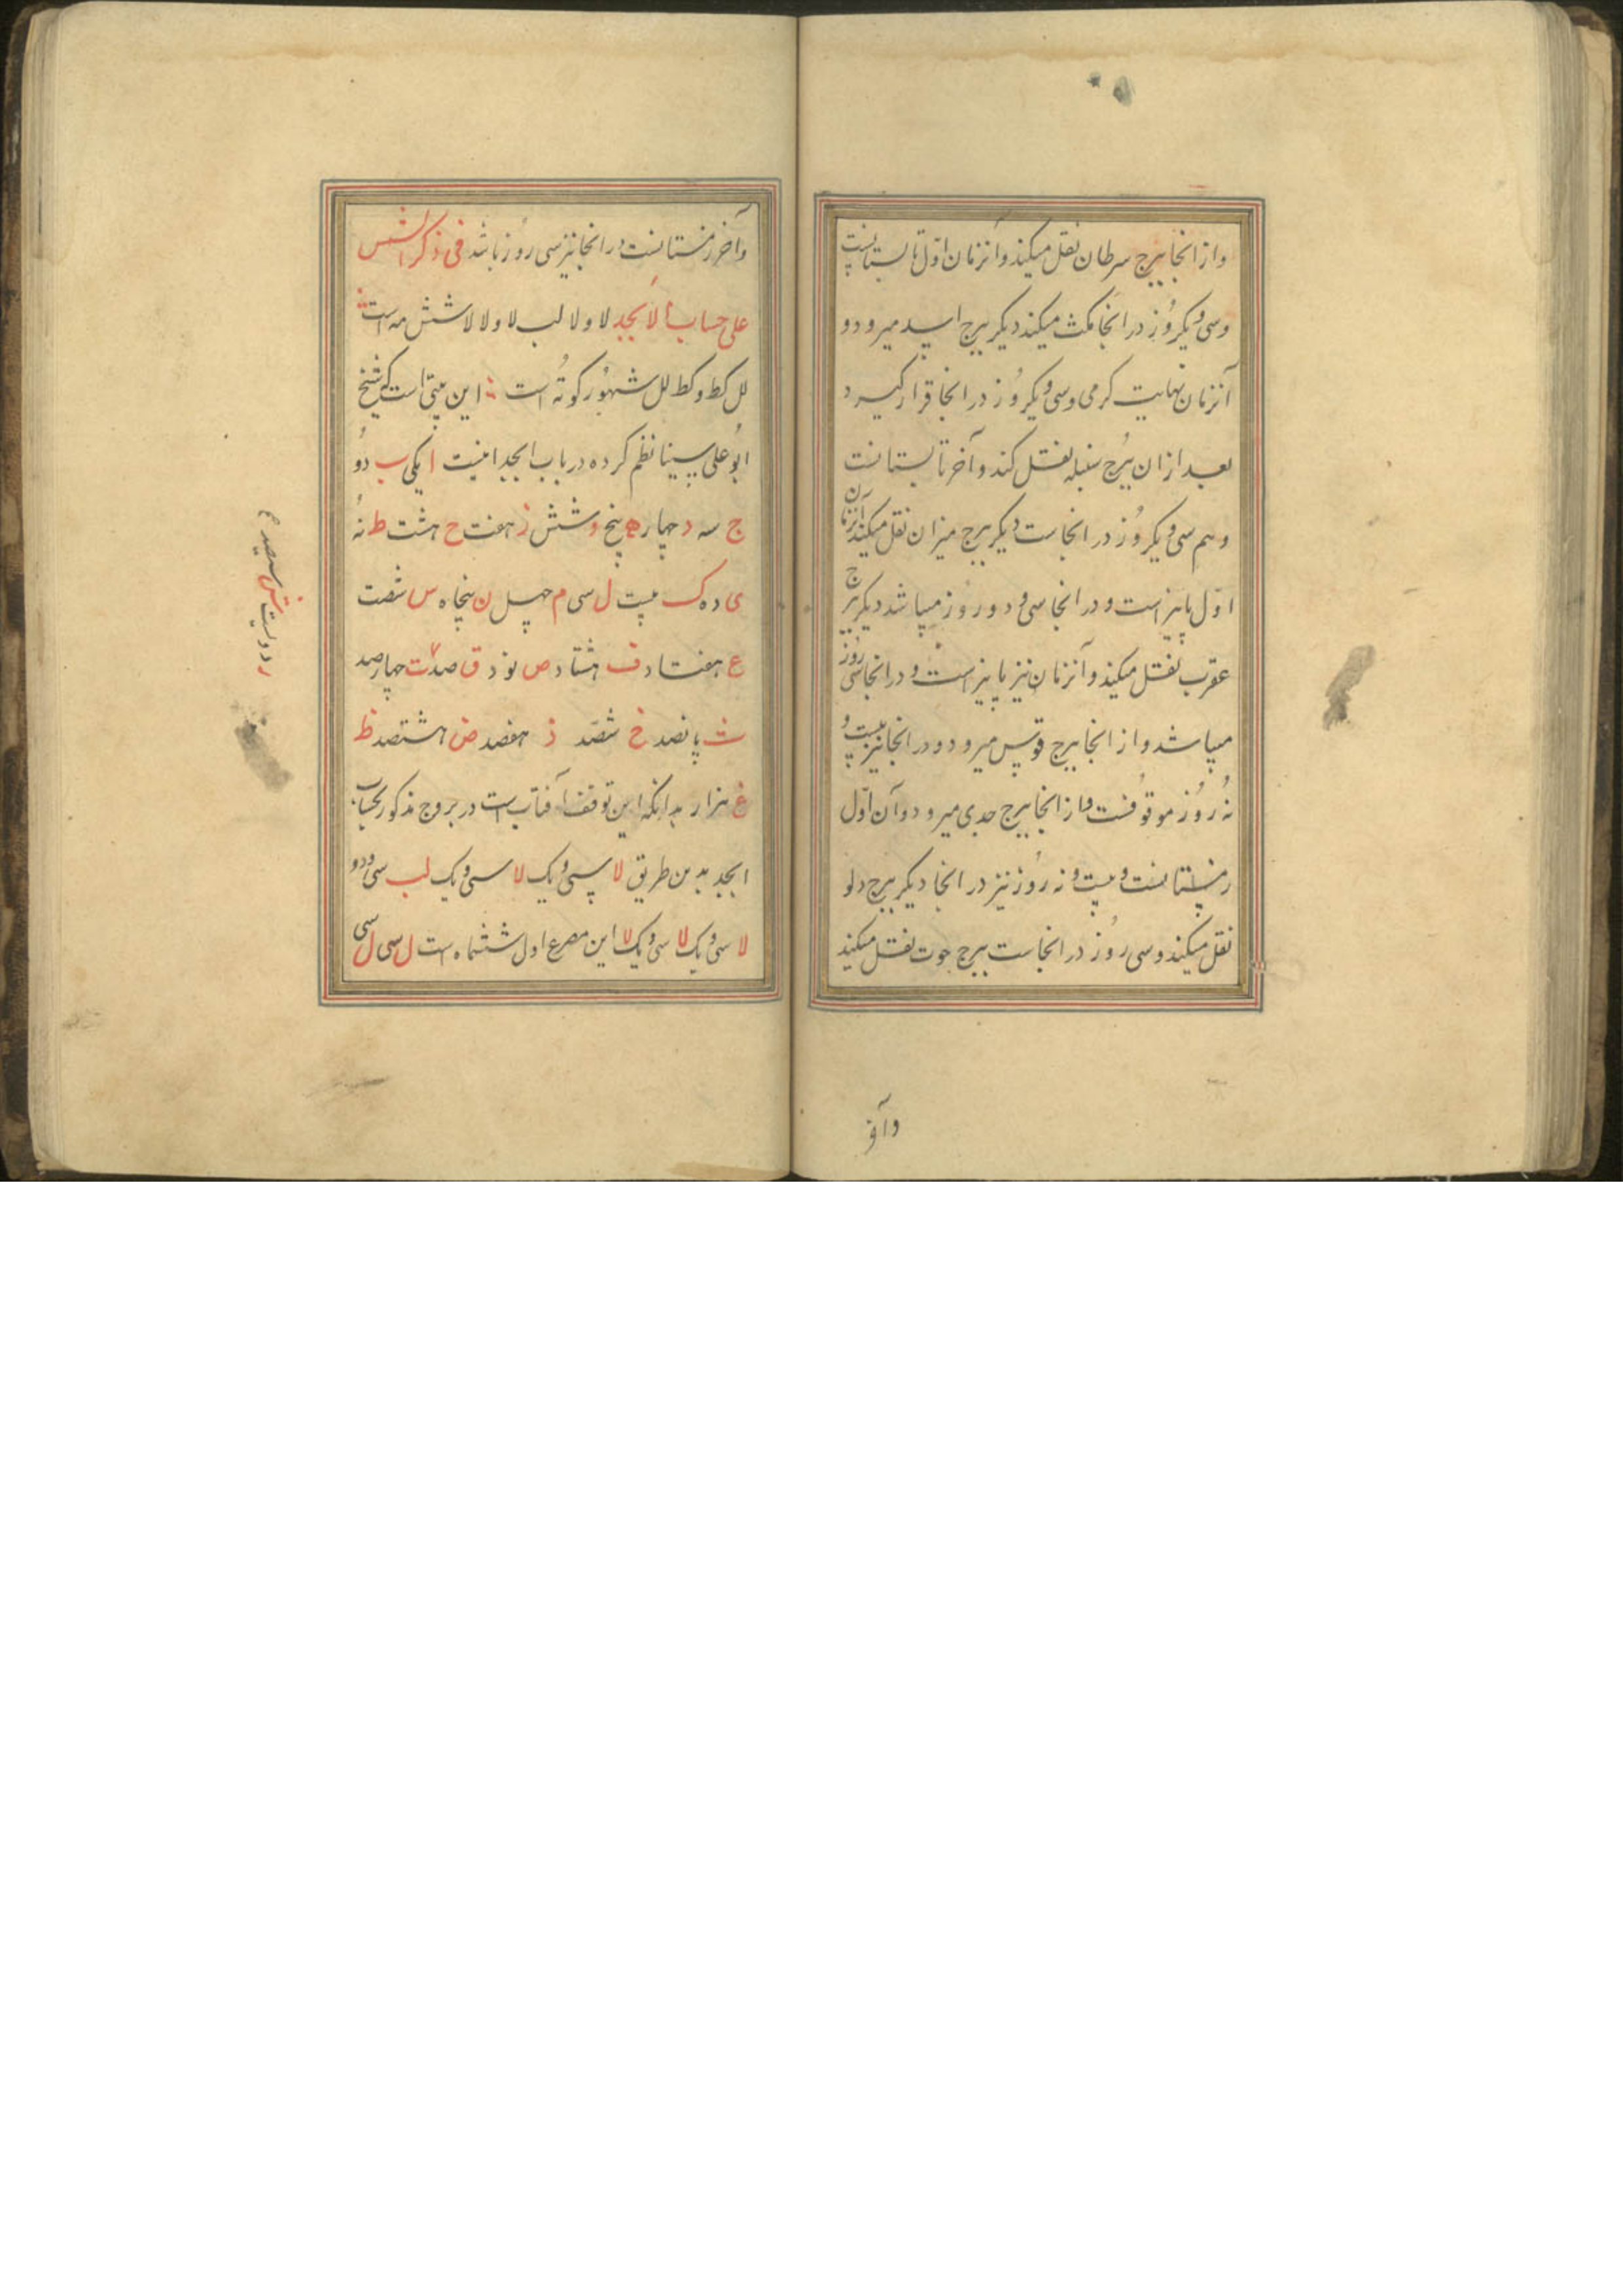 واز انجا ببرج سرطان نقل میکند وآنزمان اوّل تابستانست
وسی ویکروز در انجا مکث میکند دیکر ببرج اسد میرود و
آنزمان نهایت کرمی وسی ویکروز در انجا قرار کیرد
بعد ازان ببرج سنبله نقل کند وآخر تابستانست
وهم سی ویکروز در انجاست دیکر ببرج میزان نقل میکند آنزمان
اوّل پاییز است ودر انجا سی ودو روز میباشد دیکر ببرج
عقرب نقل میکند وآنزمان نیز پاییز است ودر انجا سی روز
میباشد واز انجا ببرج قوس میرود ودر انجا نیز بیست و
نه روز موقوفست واز انجا ببرج جدی میرود وآن اوّل
زمستانست وبیست ونه روز نیز در انجا دیکر ببرج دلو
نقل میکند وسی روز در انجاست ببرج حوت نقل میکند
وآخر
وآخر زمستانست در انجا نیز سی روز باشد فی ذکر الشمس
علی حساب الابجد لا ولا لب لا ولا لا شش مه است
لل کط وکط لل شهور کوته است این بیتی است که شیخ
ابوعلی سینا نظم کرده در باب ابجد اینست ا یکی ب دو
ج سه د چهار ه پنج و شش ز هفت ح هشت ط نه
ی ده ک بیست ل سی م چهل ن پنجاه س شصت
ع هفتاد ف هشتاد ص نود ق صد ت چهارصد
ث پانصد خ ششصد ذ هفصد ض هشتصد ظ
غ هزار بدانکه این توقف آفتاب است در بروج مذکور بحساب
ابجد بدین طریق لا سی ویک لا سی ویک لب سی ودو
لا سی ویک لا سی ویک لا این مصرع اول ششماه است ل سی ل سی
ر دویست ش سیصد